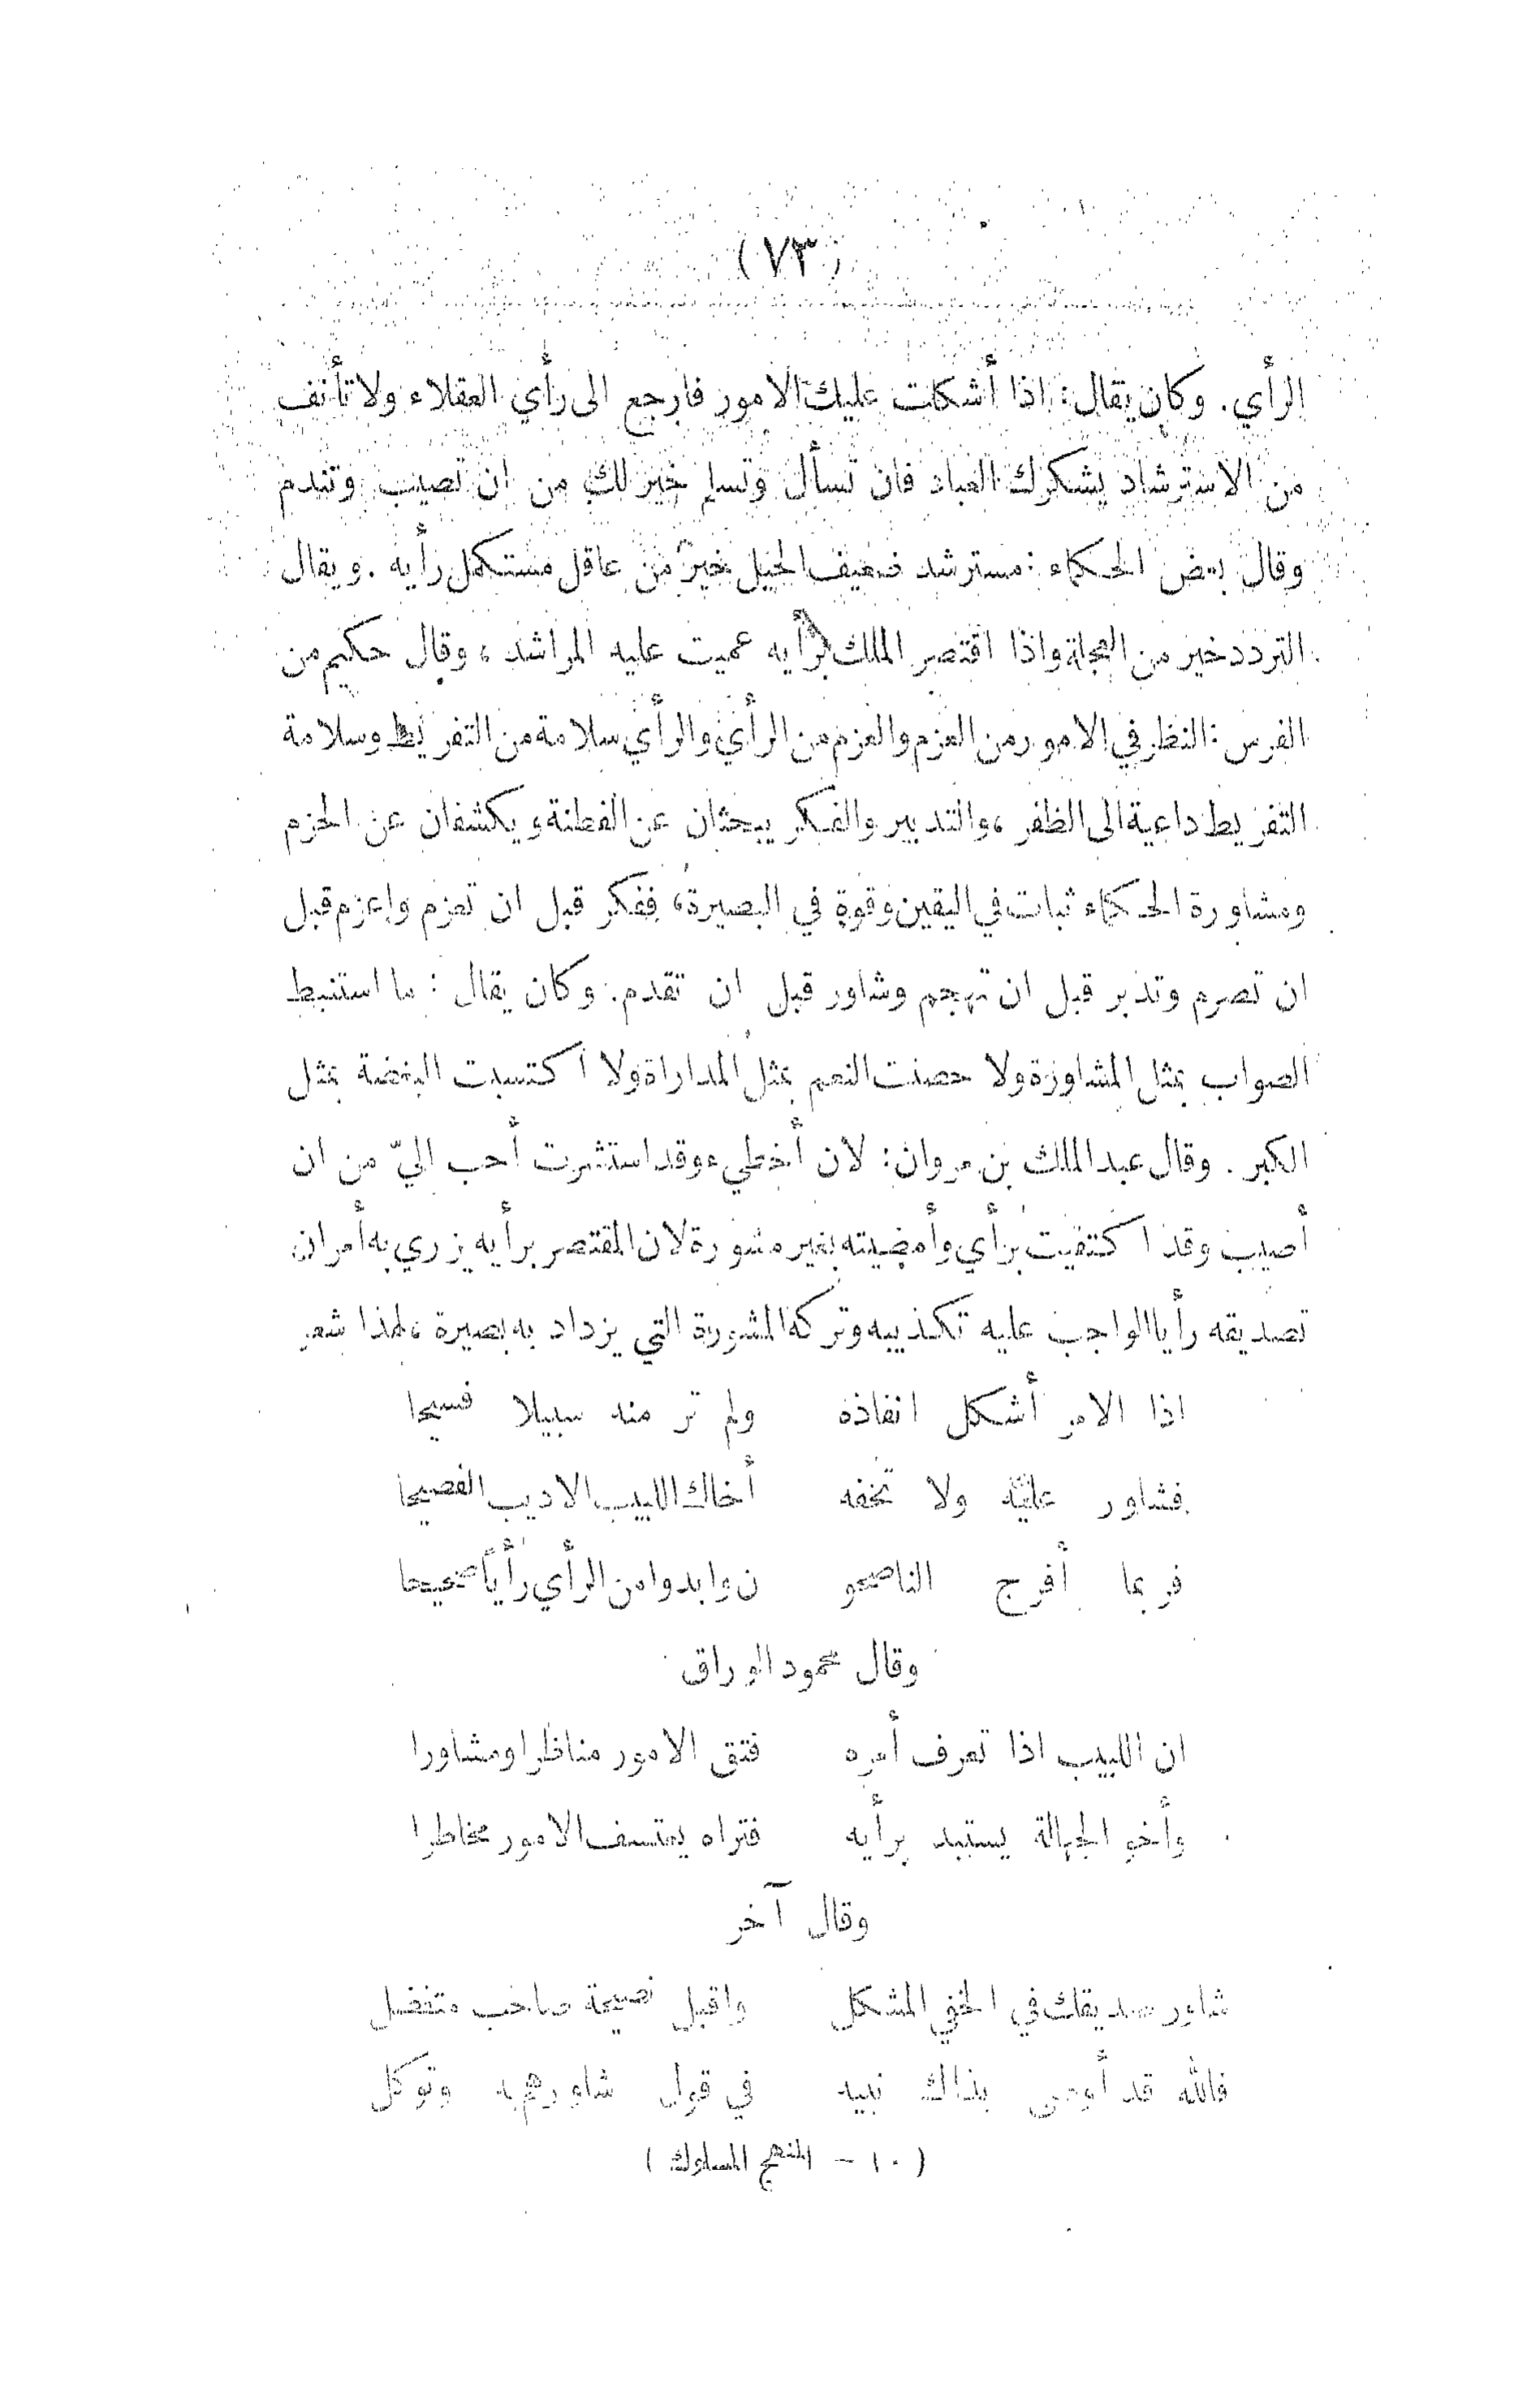 (٧٣)
الرأي. وكان يقال: اذا أشكلت عليك الامور فارجع الى رأي العقلاء ولا تأنف
من الاسترشاد يشكرك العباد فان تسأل وتسلم خير لك من ان تصيب وتندم
وقال بعض الحكماء : مسترشد ضعيف الحيل خير من عاقل مستكمل رأيه . ويقال
التردد خير من العجلة واذا اقتصر الملك برأيه عميت عليه المراشد ، وقال حكيم من
الفرس : النظر في الامور من العزم والعزم من الرأي والرأي سلامة من التفريط وسلامة
التفريط داعية الى الظفر ، والتدبير والفكر يبحثان عن الفطنة ويكشفان عن الحزم
ومشاورة الحكماء ثبات في اليقين وقوة في البصيرة ، ففكر قبل ان تعزم واعزم قبل
ان تصرم وتدبر قبل ان تهجم وشاور قبل ان تقدم . وكان يقال : ما استنبط
الصواب بمثل المشاورة ولا حصنت النعم بمثل المداراة ولا اكتسبت البغضة بمثل
الكبر . وقال عبد الملك بن مروان : لان أخطيء وقد استشرت أحب اليّ من ان
أصيب وقد اكتفيت برأي وأمضيته بغير مشورة لان المقتصر برأيه يزري به أمران
تصديقه رأيا الواجب عليه تكذيبه وتركه المشورة التي يزداد به بصيرة ، لهذا شعر
اذا الامر أشكل انفاذه ولم تر منه سبيلا فسيحا
فشاور عليه ولا تخفه أخاك اللبيب الاديب الفصيحا
فربما أفرج الناصحو ن وابدوا من الرأي رأياً صحيحا
وقال محمود الوراق
ان اللبيب اذا تعرف أمره فتق الامور مناظرا ومشاورا
وأخو الجهالة يستبد برأيه فتراه يعتسف الامور مخاطرا
وقال آخر
شاور صديقك في الخفي المشكل واقبل نصيحة صاحب متفضل
فالله قد أوصى بذاك نبيه في قول شاورهم وتوكل
(١٠ - المنهج المسلوك)